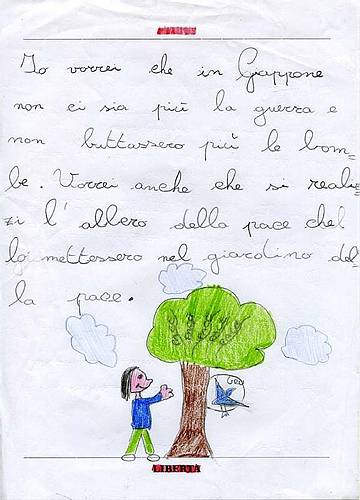 Io vorrei che in Giappone
non ci sia più la guerra e
non buttassero più le bom=
be. Vorrei anche che si reali=
zzi l'albero della pace che
lo mettessero nel giardino del
la pace.
LIBERTÀ